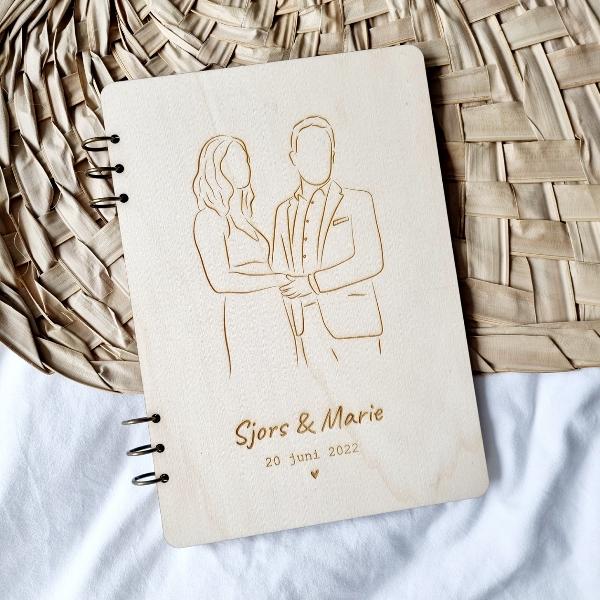 Sjors & Marie
20 juni 2022